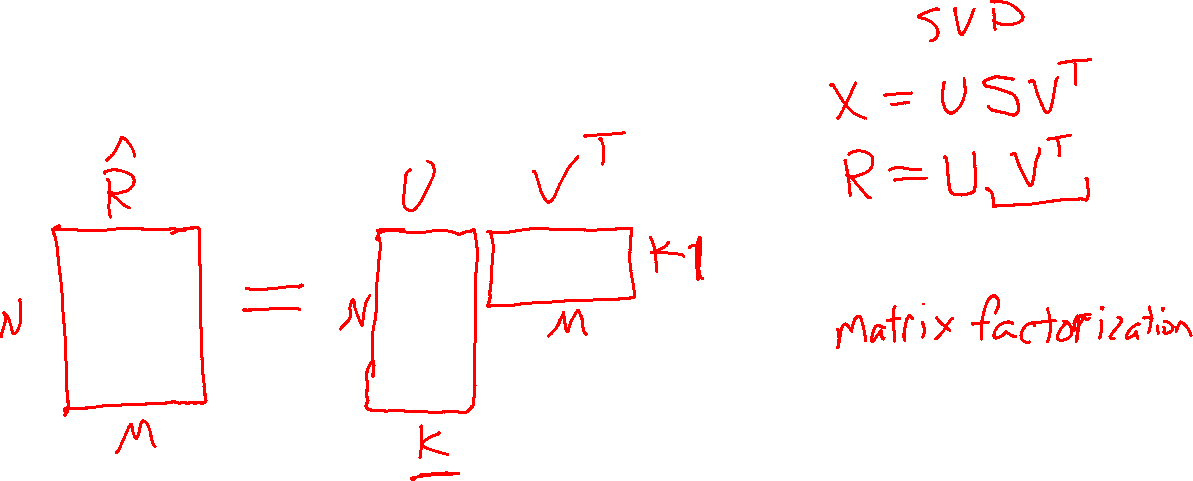 SVD
X = USV^T
R = U V^T
R̂ U V^T
N = N K1
M
M K
matrix factorization